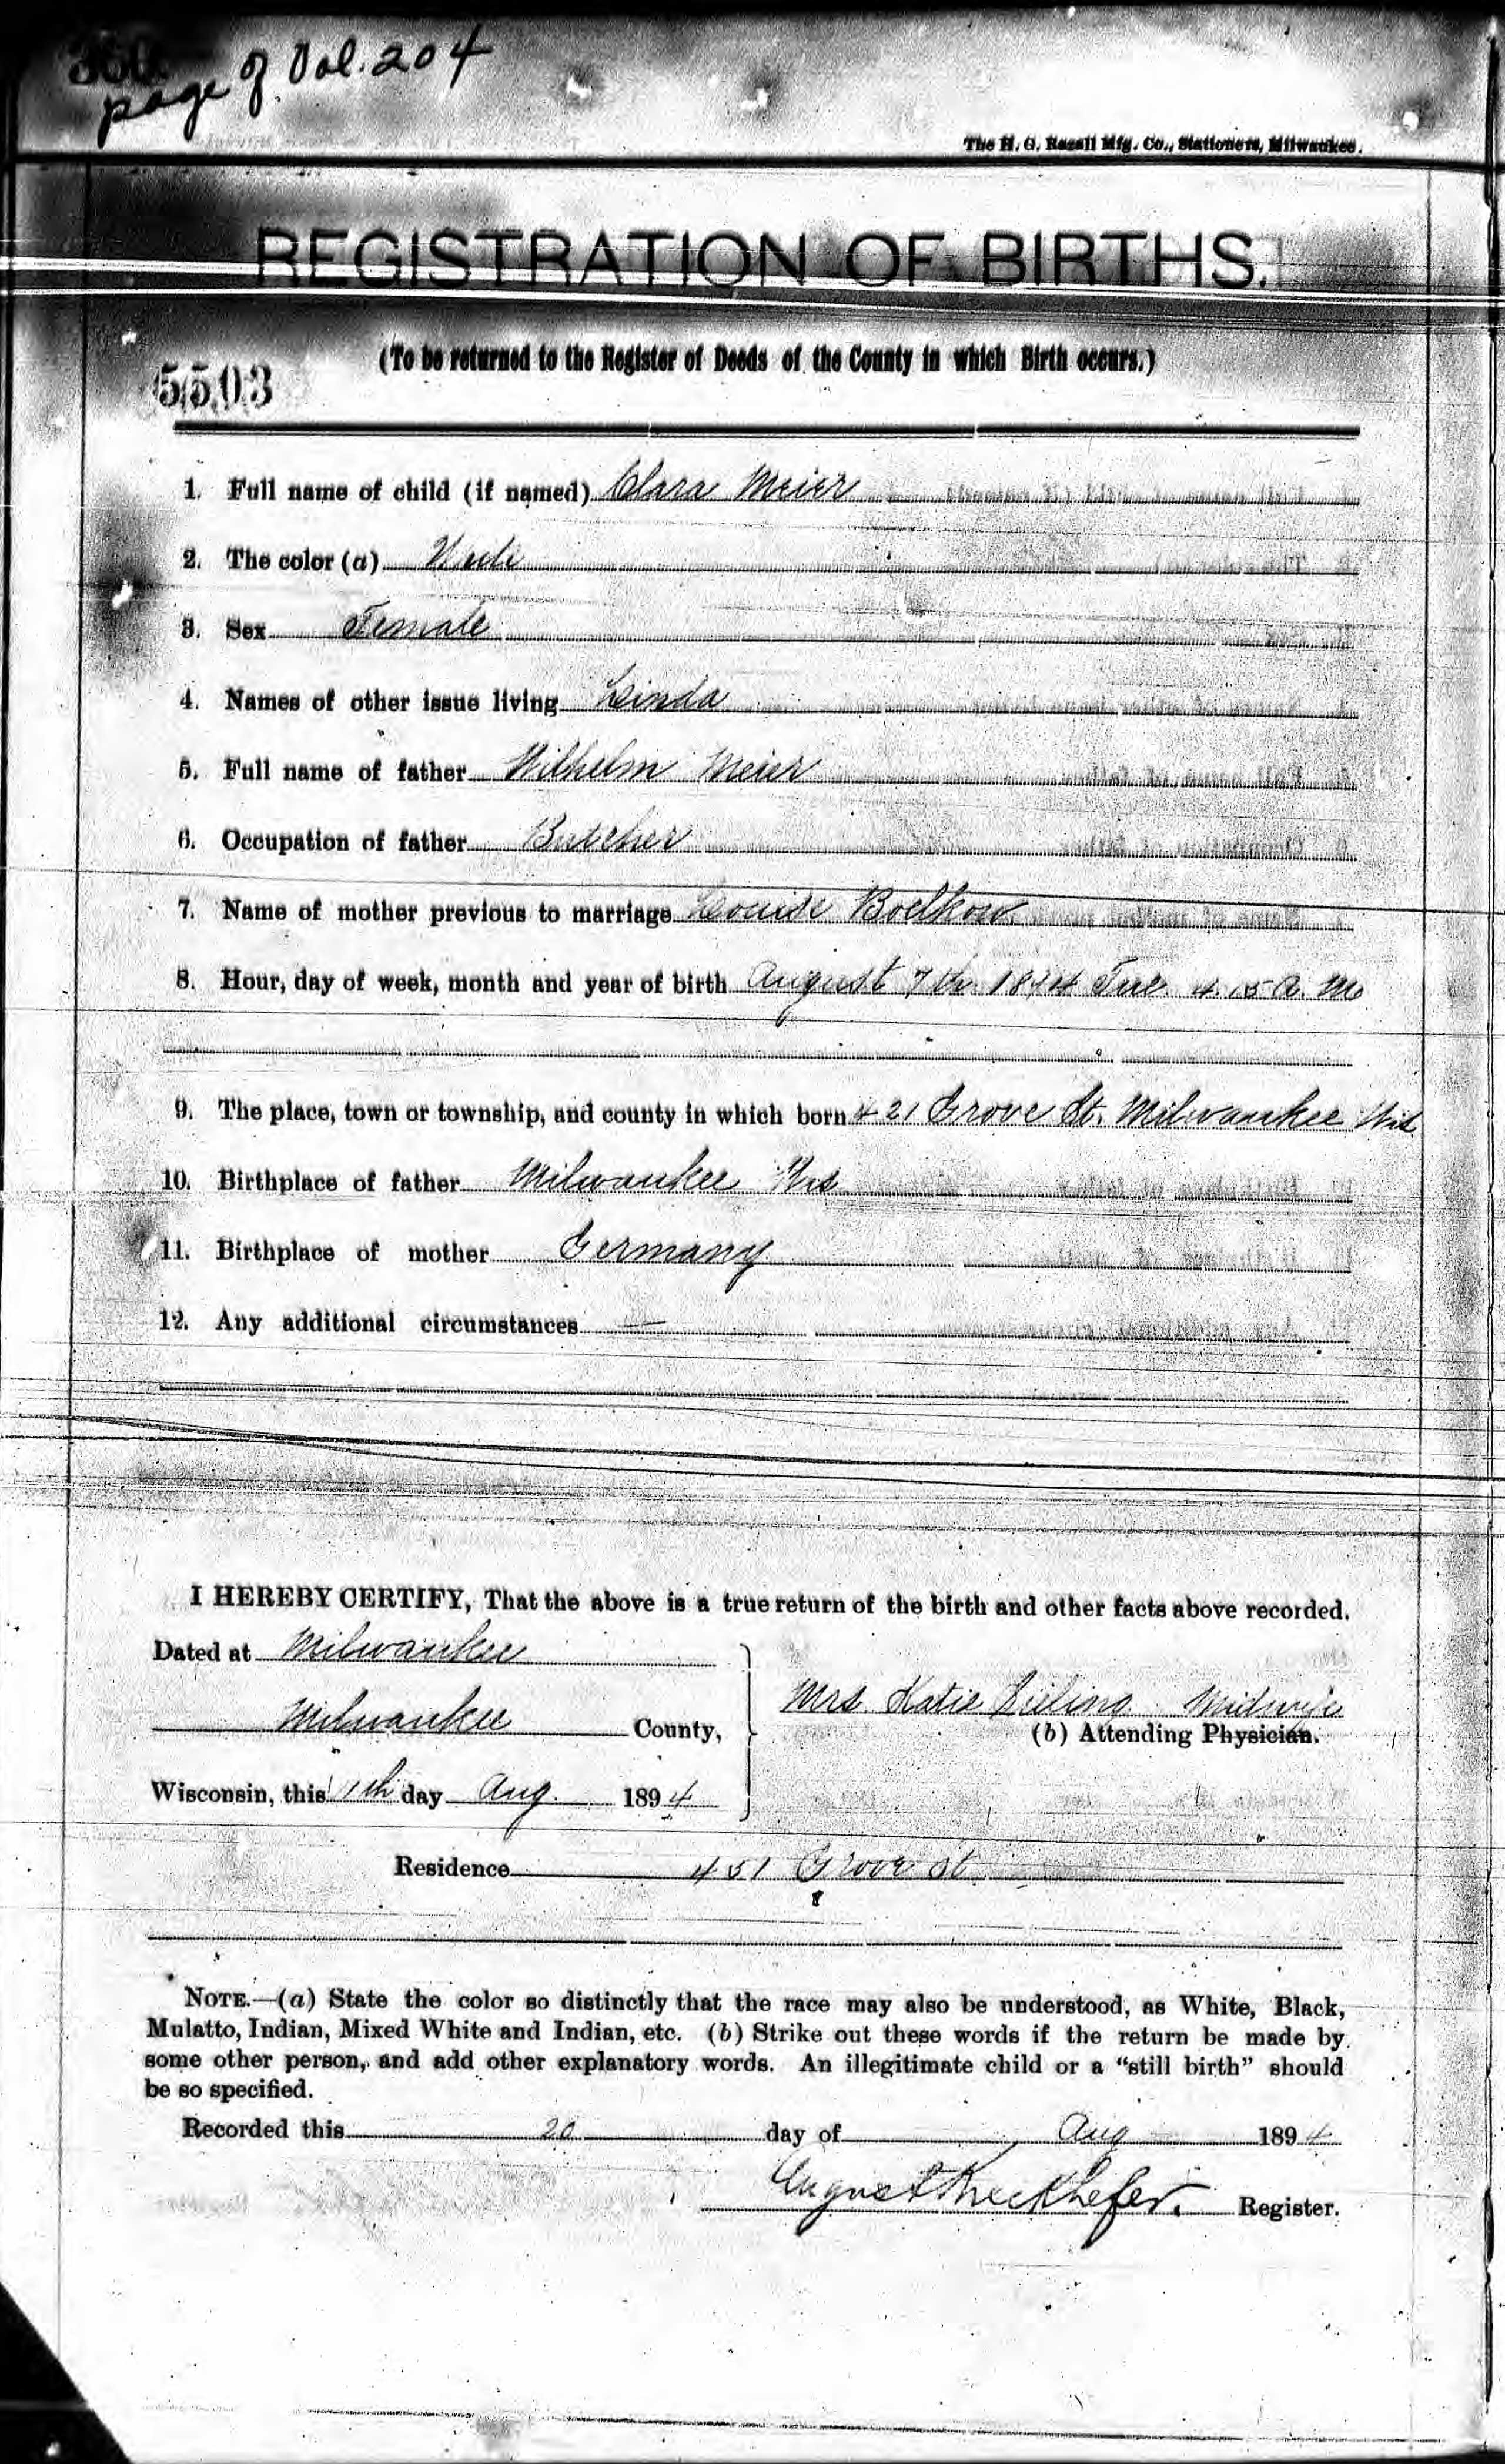 360
page of Vol. 204
The H. G. Razall Mfg. Co., Stationers, Milwaukee.
REGISTRATION OF BIRTHS.
(To be returned to the Register of Deeds of the County in which Birth occurs.)
5503
1. Full name of child (if named) Clara Meier
2. The color (a)
3. Sex Female
4. Names of other issue living Linda
5. Full name of father Wilhelm Meier
6. Occupation of father Butcher
7. Name of mother previous to marriage Louise Boelkow
8. Hour, day of week, month and year of birth August 7th 1894 Tue. 4 15 A. M
9. The place, town or township, and county in which born 421 Grove St. Milwaukee Wis.
10. Birthplace of father Milwaukee Wis
11. Birthplace of mother Germany
12. Any additional circumstances —
I HEREBY CERTIFY, That the above is a true return of the birth and other facts above recorded.
Dated at Milwaukee
Mrs Katie Midwife
Milwaukee County,
(b) Attending Physician.
Wisconsin, this day Aug. 1894
Residence 451 Grove St
NOTE.—(a) State the color so distinctly that the race may also be understood, as White, Black,
Mulatto, Indian, Mixed White and Indian, etc. (b) Strike out these words if the return be made by
some other person, and add other explanatory words. An illegitimate child or a "still birth" should
be so specified.
Recorded this 20 day of Aug 1894
August Rieckhefer. Register.